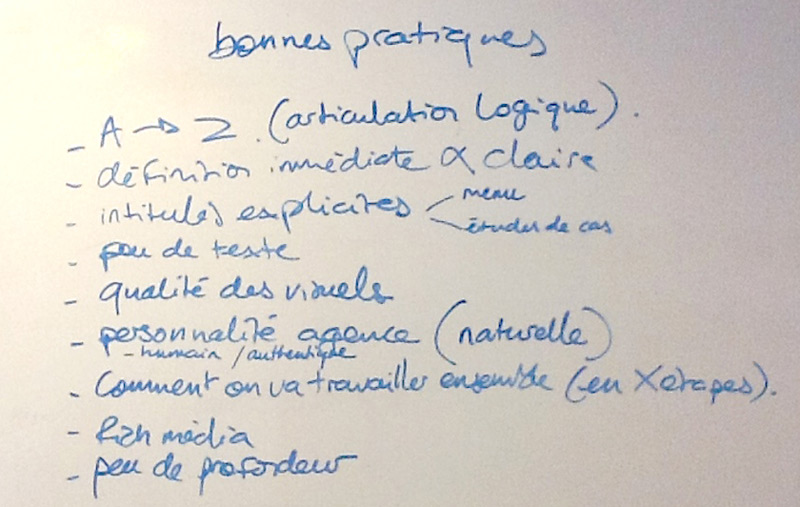 bonnes pratiques
- A → Z. (articulation logique).
- définition immédiate & claire
- intitulés explicites
menu
études de cas
- peu de texte
- qualité des visuels
- personnalité agence (naturelle)
- humain / authentique
- Comment on va travailler ensemble (en X étapes).
- Rich média
- peu de profondeur